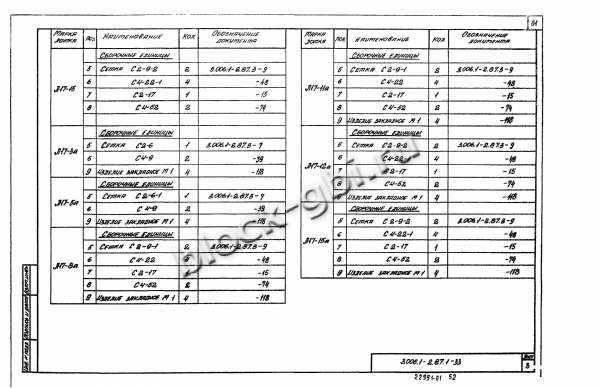 81
Марка докум. Поз. Наименование Кол. Обозначение документа
Сборочные единицы
ЛП-15 5 Сетка С2-9-2 2 3.006.1-2.87.3-9
6 С4-22-1 4 -48
7 С2-17 1 -15
8 С4-52 2 -74
Сборочные единицы
5 Сетка С2-6 1 3.006.1-2.87.3-7
6 С4-9 2 -39
9 Изделие закладное М1 4 -118
Сборочные единицы
5 Сетка С2-6-1 1 3.006.1-2.87.3-7
6 С4-9 2 -39
9 Изделие закладное М1 4 -118
Сборочные единицы
5 Сетка С2-9-1 2 3.006.1-2.87.3-9
6 С4-22 -48
7 С2-17 -15
8 С4-52 2 -74
9 Изделие закладное М1 4 -118
Поз. Наименование Кол. Обозначение документа
Сборочные единицы
5 Сетка С2-9-1 2 3.006.1-2.87.3-9
6 С4-22 4 -48
7 С2-17 1 -15
8 С4-52 2 -74
9 Изделие закладное М1 4 -118
Сборочные единицы
5 Сетка С2-9-2 2 3.006.1-2.87.3-9
6 С4-22 4 -48
7 С2-17 1 -15
8 С4-52 2 -74
Изделие закладное М1 4 -118
Сборочные единицы
5 Сетка С2-9-2 2 3.006.1-2.87.3-9
6 С4-22-1 4 -48
7 С2-17 1 -15
8 С4-52 2 -74
9 Изделие закладное М1 4 -118
block-gbi.ru
3.006.1-2.87.1-33
Лист
22991-01 52